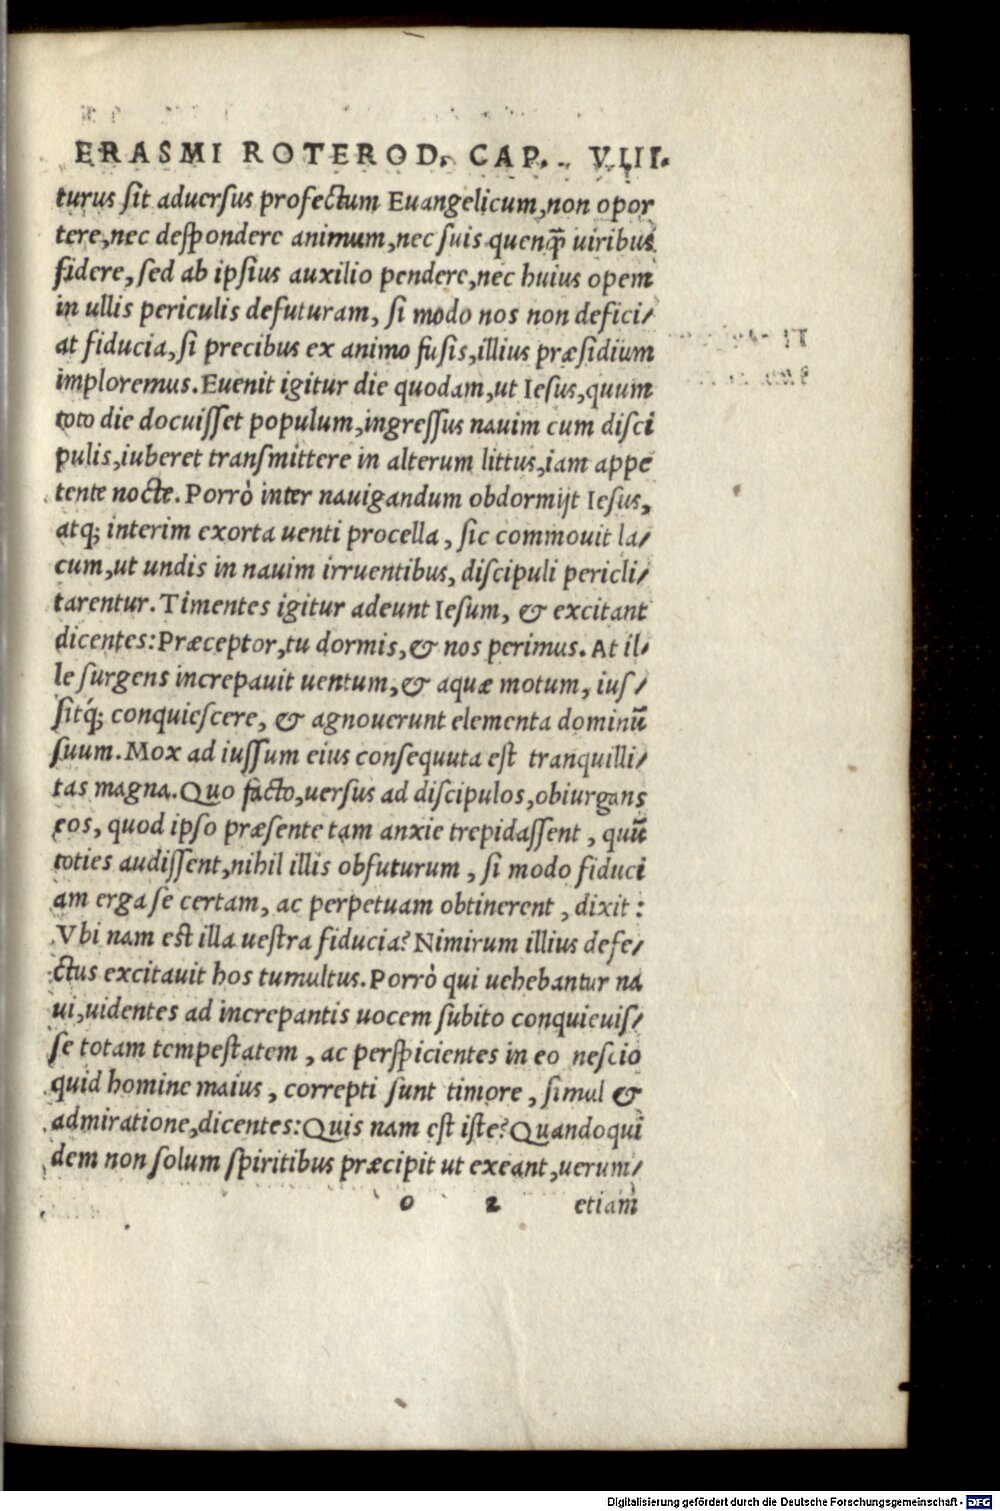 ERASMI ROTEROD. CAP. VIII.
turus sit aduersus profectum Euangelicum,non opor
tere,nec despondere animum,nec suis quenq̃ uiribus
fidere, sed ab ipsius auxilio pendere,nec huius opem
in ullis periculis defuturam, si modo nos non defici/
at fiducia, si precibus ex animo fusis,illius præsidium
imploremus. Euenit igitur die quodam,ut Iesus,quum
toto die docuisset populum,ingressus nauim cum disci
pulis,iuberet transmittere in alterum littus,iam appe
tente nocte. Porrò inter nauigandum obdormijt Iesus,
atq; interim exorta uenti procella, sic commouit la/
cum,ut undis in nauim irruentibus, discipuli pericli/
tarentur. Timentes igitur adeunt Iesum, & excitant
dicentes: Præceptor,tu dormis,& nos perimus. At il/
le surgens increpauit uentum,& aquæ motum, ius/
sitq́; conquiescere, & agnouerunt elementa dominũ
suum. Mox ad iussum eius consequuta est tranquilli/
tas magna. Quo facto,uersus ad discipulos,obiurgans
eos, quod ipso præsente tam anxie trepidassent, quũ
toties audissent,nihil illis obfuturum, si modo fiduci
am erga se certam, ac perpetuam obtinerent, dixit:
Vbi nam est illa uestra fiducia? Nimirum illius defe/
ctus excitauit hos tumultus. Porrò qui uehebantur na
ui,uidentes ad increpantis uocem subito conquieuis/
se totam tempestatem, ac perspicientes in eo nescio
quid homine maius, correpti sunt timore, simul &
admiratione,dicentes: Quis nam est iste? Quandoqui
dem non solum spiritibus præcipit ut exeant,uerum/
o 2 etiam
Digitalisierung gefördert durch die Deutsche Forschungsgemeinschaft - DFG